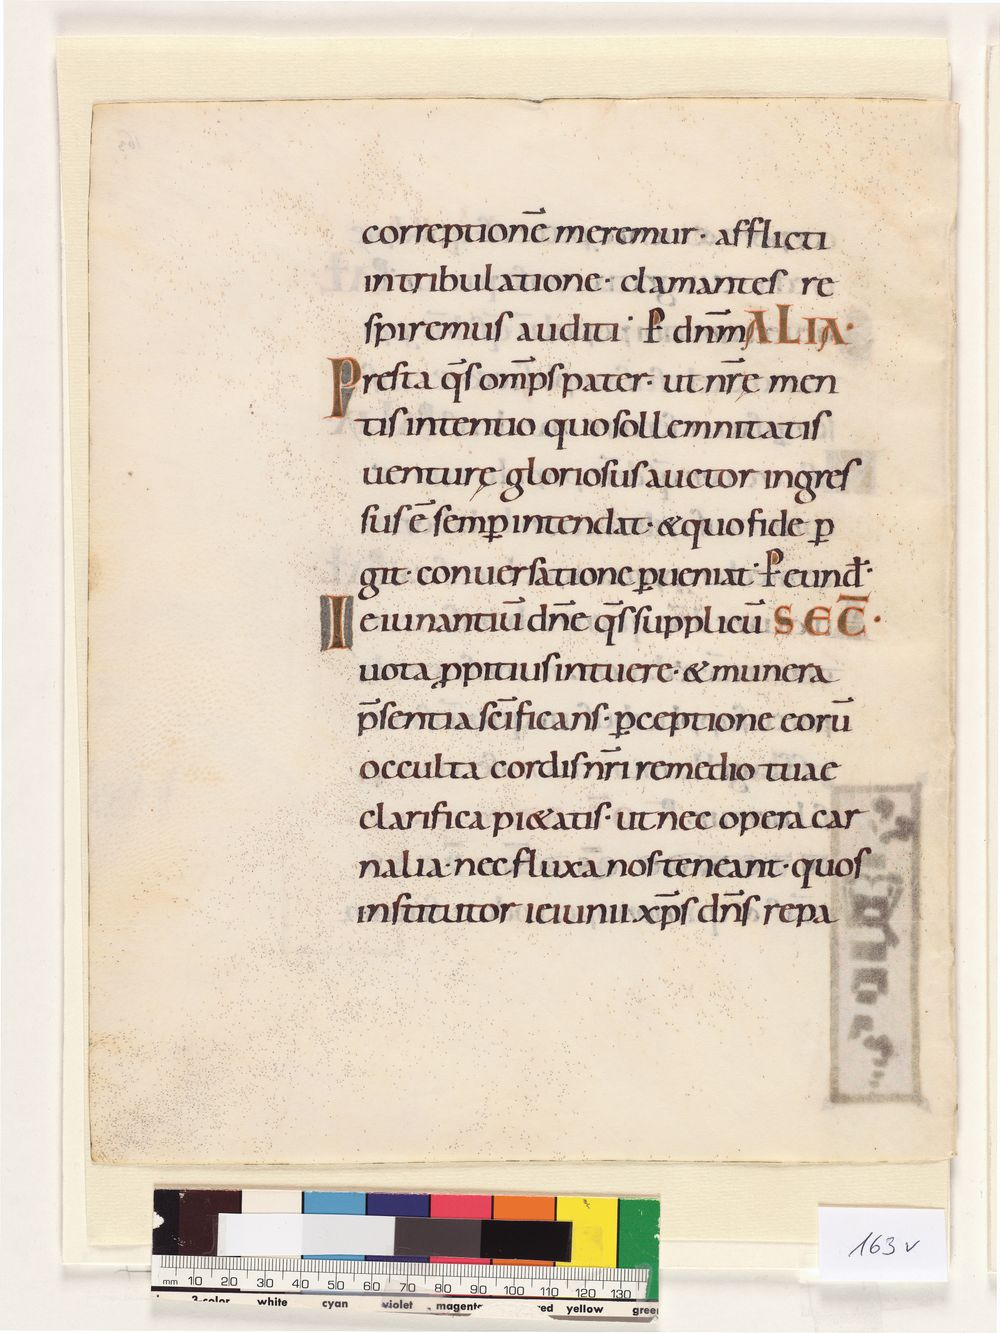 correptionē meremur· afflicti
intribulatione· clamantes re
spiremus auditi· P̄ dn̄m ALIA·
Presta q̄s om̄ps pater· ut nr̄ę men
tis intentio quo sollemnitatis
uenturę gloriosus auctor ingres
sus ē semꝑ intendat· & quo fide ꝑ
git· conuersatione ꝑueniat· P̄ eund̄·
Ieiunantiū dn̄e q̄s supplicū SEC̄·
uota ꝓpitius intuere· & munera
p̄sentia sc̄ificans· ꝑceptione eorū
occulta cordis nr̄i remedio tuae
clarifica pi&atis· ut nec opera car
nalia· nec fluxa nos teneant· quos
institutor ieiunii xp̄s dn̄s repa
163 v
mm 10 20 30 40 50 60 70 80 90 100 110 120 130
3-color white cyan violet magenta red yellow green